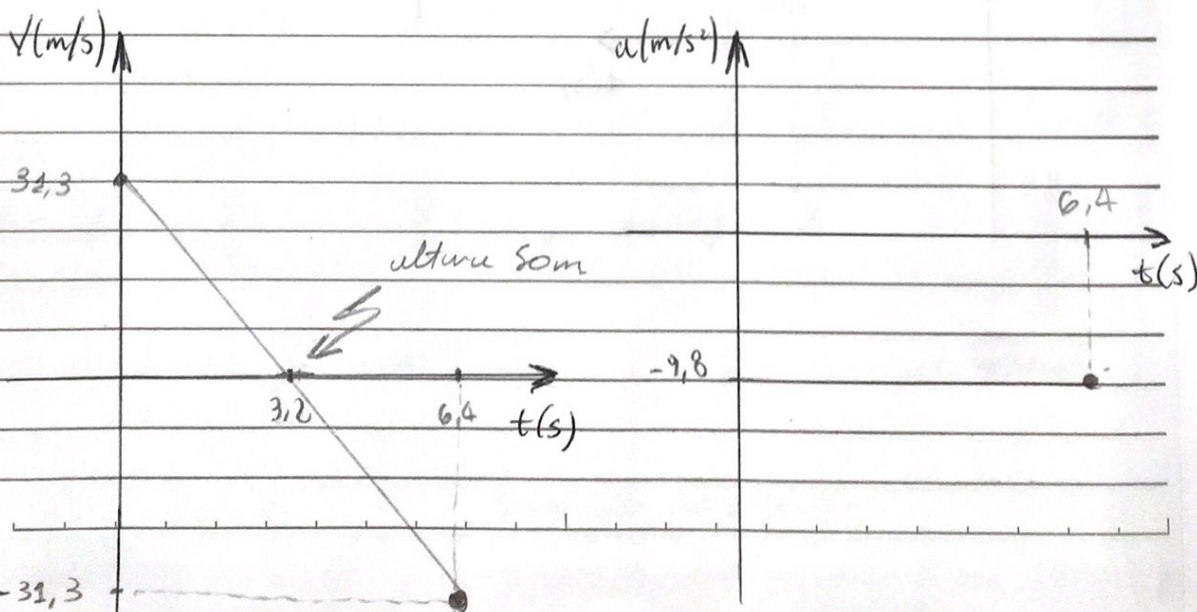 V(m/s)
31,3
altura 50m
3,2
6,4
t(s)
-31,3
a(m/s²)
6,4
t(s)
-9,8